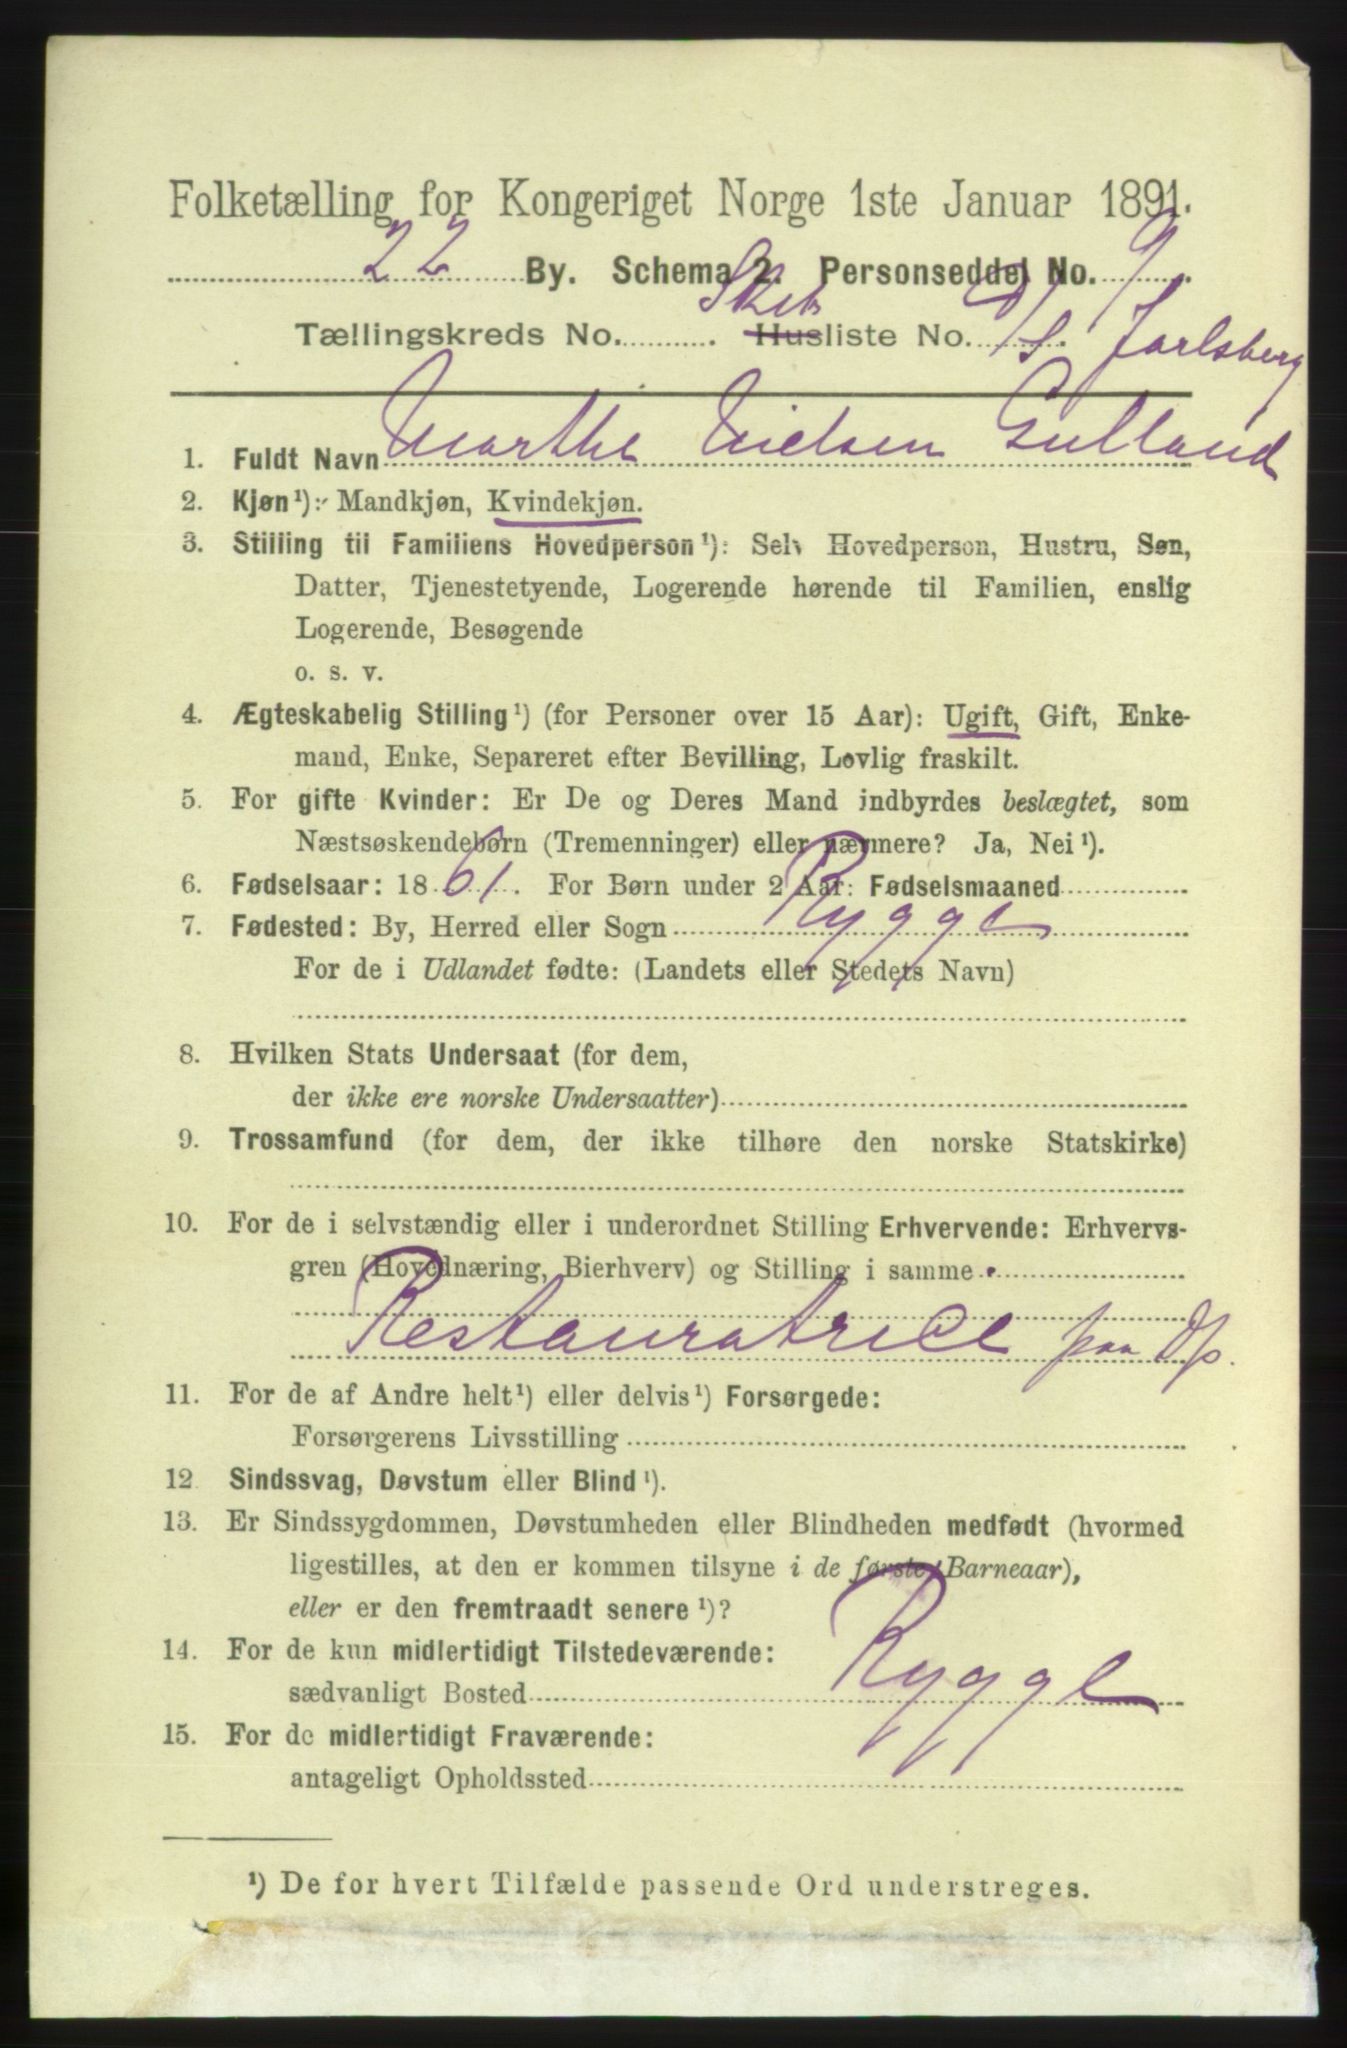 Folketælling for Kongeriget Norge 1ste Januar 1891.
22 By. Schema 2. Personseddel No. 9.
Tællingskreds No. . Skibsliste No. D/S Jarlsberg
1. Fuldt Navn Marthe Nielsen Gulland
2. Kjøn¹): Mandkjøn, Kvindekjøn.
3. Stilling til Familiens Hovedperson¹): Selv Hovedperson, Hustru, Søn,
Datter, Tjenestetyende, Logerende hørende til Familien, enslig
Logerende, Besøgende
o. s. v.
4. Ægteskabelig Stilling¹) (for Personer over 15 Aar): Ugift, Gift, Enke-
mand, Enke, Separeret efter Bevilling, Lovlig fraskilt.
5. For gifte Kvinder: Er De og Deres Mand indbyrdes beslægtet, som
Næstsøskendebørn (Tremenninger) eller nærmere? Ja, Nei¹).
6. Fødselsaar: 1861. For Børn under 2 Aar: Fødselsmaaned
7. Fødested: By, Herred eller Sogn Rygge
For de i Udlandet fødte: (Landets eller Stedets Navn)
8. Hvilken Stats Undersaat (for dem,
der ikke ere norske Undersaatter)
9. Trossamfund (for dem, der ikke tilhøre den norske Statskirke)
10. For de i selvstændig eller i underordnet Stilling Erhvervende: Erhvervs-
gren (Hovednæring, Bierhverv) og Stilling i samme
Restauratrice paa D/s.
11. For de af Andre helt¹) eller delvis¹) Forsørgede:
Forsørgerens Livsstilling
12. Sindssvag, Døvstum eller Blind¹).
13. Er Sindssygdommen, Døvstumheden eller Blindheden medfødt (hvormed
ligestilles, at den er kommen tilsyne i de første Barneaar),
eller er den fremtraadt senere¹)?
14. For de kun midlertidigt Tilstedeværende:
sædvanligt Bosted Rygge
15. For de midlertidigt Fraværende:
antageligt Opholdssted
¹) De for hvert Tilfælde passende Ord understreges.